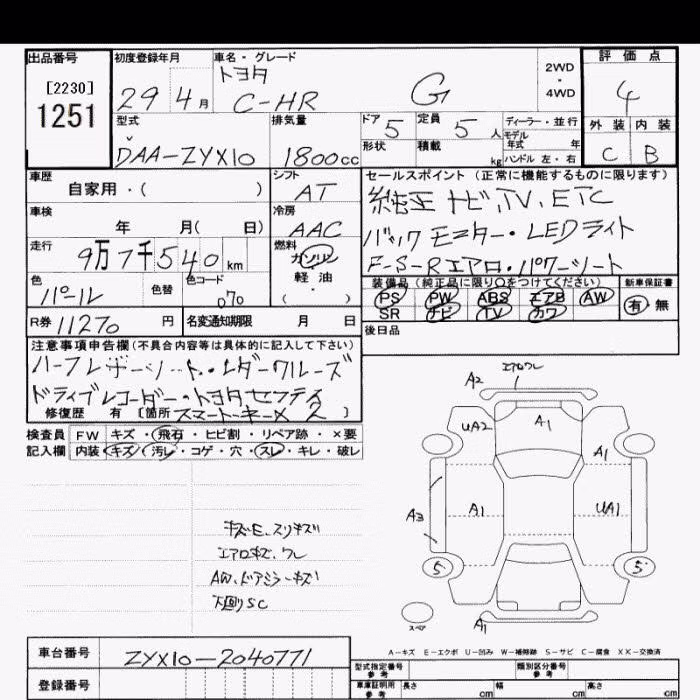 出品番号
[2230]
1251
初度登録年月
29年 4月
車名・グレード
トヨタ
C-HR G
2WD
・
4WD
評価点
4
外装 内装
C B
型式
DAA-ZYX10
排気量
1800cc
ドア 5
定員 5人
形状
積載 kg
ディーラー・並行
モデル年式 年
ハンドル 左・右
車歴
自家用・( )
シフト
AT
セールスポイント (正常に機能するものに限ります)
純正ナビ、TV、ETC
バックモニター・LEDライト
F-S-Rエアロ・パワーシート
車検
年 月( 日)
冷房
AAC
走行
9万7千540km
燃料
ガソリン
軽油
・
( )
色
パール
色替
色コード
070
装備品 (純正品に限り○をつけてください)
PS PW ABS エアB AW
SR ナビ TV カワ
新車保証書
有 無
R券 11270 円
名変通知期限 月 日
後日品
注意事項申告欄(不具合内容等は具体的に記入して下さい)
ハーフレザーシート・レダークルーズ
ドライブレコーダー・トヨタセンティ
修復歴 有 [箇所 スマートキー×2 ]
検査員 FW キズ・飛石・ヒビ割・リペア跡・×要
記入欄 内装 キズ・汚レ・コゲ・穴・スレ・キレ・破レ
キズE、スリキズ
エアロキズ、ワレ
AW、ドアミラーキズ
下回りSC
A2
エアロワレ
UA2
A1
A1
A3
A1
UA1
5
5
スペア
A1
A-キズ E-エクボ U-凹み W-補修跡 S-サビ C-腐食 XX-交換済
車台番号
ZYX10-2040771
登録番号
型式指定番号
参考
類別区分番号
参考
車庫証明用
参考
長さ cm 幅 cm 高さ cm